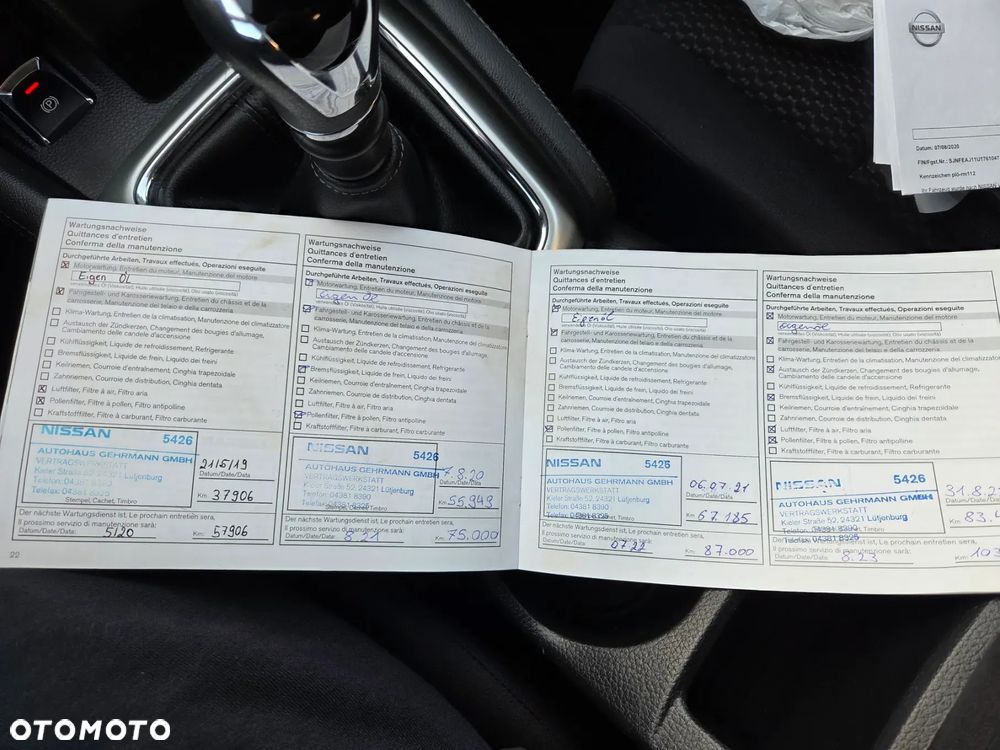 NISSAN
Datum: 07/08/2020
FIN/Fgst.Nr.: SJNFEAJ11U1761047
Kennzeichen plö-rm112
Wartungsnachweise
Quittances d'entretien
Conferma della manutenzione
Durchgeführte Arbeiten, Travaux effectués, Operazioni eseguite
Motorwartung, Entretien du moteur, Manutenzione del motore
Eigen Öl
Fahrgestell- und Karosseriewartung, Entretien du châssis et de la
carrosserie, Manutenzione del telaio e della carrozzeria
Klima-Wartung, Entretien de la climatisation, Manutenzione del climatizzatore
Austausch der Zündkerzen, Changement des bougies d'allumage,
Cambiamento delle candele d'accensione
Kühlflüssigkeit, Liquide de refroidissement, Refrigerante
Bremsflüssigkeit, Liquide de frein, Liquido dei freini
Keilriemen, Courroie d'entraînement, Cinghia trapezoidale
Zahnriemen, Courroie de distribution, Cinghia dentata
Luftfilter, Filtre à air, Filtro aria
Pollenfilter, Filtre à pollen, Filtro antipolline
Kraftstofffilter, Filtre à carburant, Filtro carburante
NISSAN 5426
AUTOHAUS GEHRMANN GMBH
VERTRAGSWERKSTATT
Kieler Straße 52, 24321 Lütjenburg
Telefon: 04381 8390
Telefax: 04381 8325
Stempel, Cachet, Timbro
21/5/19
Datum/Date/Data
Km: 37906
Der nächste Wartungsdienst ist, Le prochain entretien sera,
Il prossimo servizio di manutenzione sarà:
Datum/Date/Data: 5/20 Km: 57906
22
Wartungsnachweise
Quittances d'entretien
Conferma della manutenzione
Durchgeführte Arbeiten, Travaux effectués, Operazioni eseguite
Motorwartung, Entretien du moteur, Manutenzione del motore
Eigen Öl
Fahrgestell- und Karosseriewartung, Entretien du châssis et de la
carrosserie, Manutenzione del telaio e della carrozzeria
Klima-Wartung, Entretien de la climatisation, Manutenzione del climatizzatore
Austausch der Zündkerzen, Changement des bougies d'allumage,
Cambiamento delle candele d'accensione
Kühlflüssigkeit, Liquide de refroidissement, Refrigerante
Bremsflüssigkeit, Liquide de frein, Liquido dei freini
Keilriemen, Courroie d'entraînement, Cinghia trapezoidale
Zahnriemen, Courroie de distribution, Cinghia dentata
Luftfilter, Filtre à air, Filtro aria
Pollenfilter, Filtre à pollen, Filtro antipolline
Kraftstofffilter, Filtre à carburant, Filtro carburante
NISSAN 5426
AUTOHAUS GEHRMANN GMBH
VERTRAGSWERKSTATT
Kieler Straße 52, 24321 Lütjenburg
Telefon: 04381 8390
Stempel, Cachet, Timbro
7.8.20
Datum/Date/Data
Km: 55.949
Der nächste Wartungsdienst ist, Le prochain entretien sera,
Il prossimo servizio di manutenzione sarà:
Datum/Date/Data: 8.21 Km: 75.000
Wartungsnachweise
Quittances d'entretien
Conferma della manutenzione
Durchgeführte Arbeiten, Travaux effectués, Operazioni eseguite
Motorwartung, Entretien du moteur, Manutenzione del motore
Eigenöl
Fahrgestell- und Karosseriewartung, Entretien du châssis et de la
carrosserie, Manutenzione del telaio e della carrozzeria
Klima-Wartung, Entretien de la climatisation, Manutenzione del climatizzatore
Austausch der Zündkerzen, Changement des bougies d'allumage,
Cambiamento delle candele d'accensione
Kühlflüssigkeit, Liquide de refroidissement, Refrigerante
Bremsflüssigkeit, Liquide de frein, Liquido dei freini
Keilriemen, Courroie d'entraînement, Cinghia trapezoidale
Zahnriemen, Courroie de distribution, Cinghia dentata
Luftfilter, Filtre à air, Filtro aria
Pollenfilter, Filtre à pollen, Filtro antipolline
Kraftstofffilter, Filtre à carburant, Filtro carburante
NISSAN 5426
AUTOHAUS GEHRMANN GMBH
VERTRAGSWERKSTATT
Kieler Straße 52, 24321 Lütjenburg
Telefon: 04381 8390
Telefax: 04381 8325
06.07.21
Datum/Date/Data
Km: 67.185
Der nächste Wartungsdienst ist, Le prochain entretien sera,
Il prossimo servizio di manutenzione sarà:
Datum/Date/Data 07.22 Km: 87.000
Wartungsnachweise
Quittances d'entretien
Conferma della manutenzione
Durchgeführte Arbeiten, Travaux effectués, Operazioni eseguite
Motorwartung, Entretien du moteur, Manutenzione del motore
Eigenöl
Fahrgestell- und Karosseriewartung, Entretien du châssis et de la
carrosserie, Manutenzione del telaio e della carrozzeria
Klima-Wartung, Entretien de la climatisation, Manutenzione del
Austausch der Zündkerzen, Changement des bougies d'allumage,
Cambiamento delle candele d'accensione
Kühlflüssigkeit, Liquide de refroidissement, Refrigerante
Bremsflüssigkeit, Liquide de frein, Liquido dei freini
Keilriemen, Courroie d'entraînement, Cinghia trapezoidale
Zahnriemen, Courroie de distribution, Cinghia dentata
Luftfilter, Filtre à air, Filtro aria
Pollenfilter, Filtre à pollen, Filtro antipolline
Kraftstofffilter, Filtre à carburant, Filtro carburante
NISSAN 5426
AUTOHAUS GEHRMANN GMBH
VERTRAGSWERKSTATT
Kieler Straße 52, 24321 Lütjenburg
Telefon: 04381 8390
Telefax: 04381 8325
31.8.2
Datum/Date/Data
Km: 83.4
Der nächste Wartungsdienst ist, Le prochain entretien sera,
Il prossimo servizio di manutenzione sarà:
Datum/Date/Data: 8.23 Km: 103
OTOMOTO